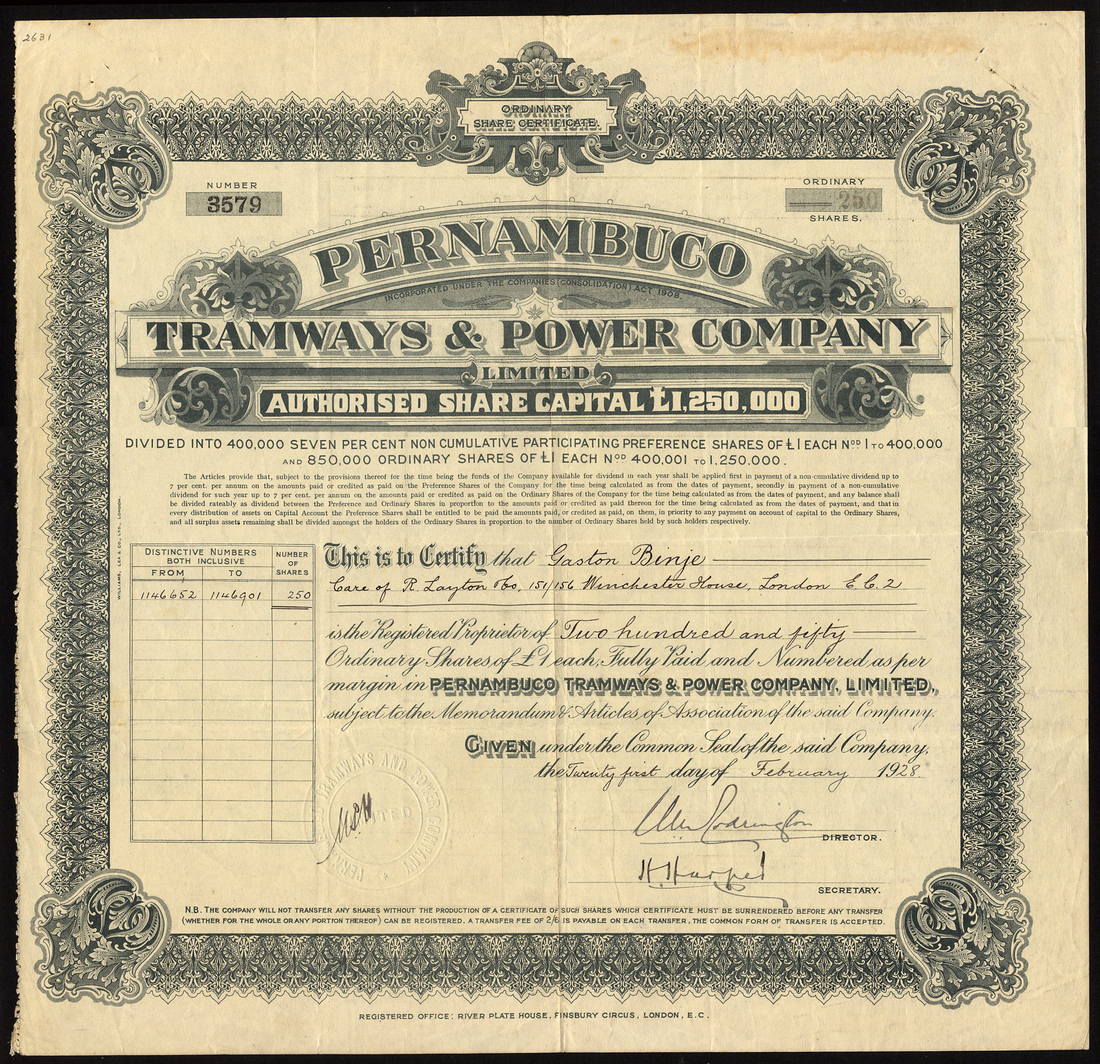 2631
ORDINARY
SHARE CERTIFICATE.
NUMBER
3579
ORDINARY
250
SHARES.
PERNAMBUCO
INCORPORATED UNDER THE COMPANIES (CONSOLIDATION) ACT 1908.
TRAMWAYS & POWER COMPANY
LIMITED
AUTHORISED SHARE CAPITAL £1,250,000
DIVIDED INTO 400,000 SEVEN PER CENT NON CUMULATIVE PARTICIPATING PREFERENCE SHARES OF £1 EACH NOD 1 TO 400,000
AND 850,000 ORDINARY SHARES OF £1 EACH NOD 400,001 TO 1,250,000.
The Articles provide that, subject to the provisions thereof for the time being the funds of the Company available for dividend in each year shall be applied first in payment of a non-cumulative dividend up to
7 per cent. per annum on the amounts paid or credited as paid on the Preference Shares of the Company for the time being calculated as from the dates of payment, secondly in payment of a non-cumulative
dividend for such year up to 7 per cent. per annum on the amounts paid or credited as paid on the Ordinary Shares of the Company for the time being calculated as from the dates of payment, and any balance shall
be divided rateably as dividend between the Preference and Ordinary Shares in proportion to the amounts paid or credited as paid thereon for the time being calculated as from the dates of payment, and that in
every distribution of assets on Capital Account the Preference Shares shall be entitled to be paid the amounts paid, or credited as paid, on them, in priority to any payment on account of capital to the Ordinary Shares,
and all surplus assets remaining shall be divided amongst the holders of the Ordinary Shares in proportion to the number of Ordinary Shares held by such holders respectively.
WILLIAMS, LEA & CO., LTD., LONDON.
DISTINCTIVE NUMBERS
BOTH INCLUSIVE
FROM TO
NUMBER
OF
SHARES
1146652 1146901 250
This is to Certify that Gaston Binje
Care of R. Layton & Co, 151/156 Winchester House, London E.C.2
is the Registered Proprietor of Two hundred and fifty
Ordinary Shares of £1 each, Fully Paid and Numbered as per
margin in PERNAMBUCO TRAMWAYS & POWER COMPANY, LIMITED,
subject to the Memorandum & Articles of Association of the said Company.
GIVEN under the Common Seal of the said Company,
the Twenty first day of February 1928.
TRAMWAYS AND POWER COMPANY
LIMITED
DIRECTOR.
H. Harper
SECRETARY.
N.B. THE COMPANY WILL NOT TRANSFER ANY SHARES WITHOUT THE PRODUCTION OF A CERTIFICATE OF SUCH SHARES WHICH CERTIFICATE MUST BE SURRENDERED BEFORE ANY TRANSFER
(WHETHER FOR THE WHOLE OR ANY PORTION THEREOF) CAN BE REGISTERED. A TRANSFER FEE OF 2/6 IS PAYABLE ON EACH TRANSFER. THE COMMON FORM OF TRANSFER IS ACCEPTED.
REGISTERED OFFICE: RIVER PLATE HOUSE, FINSBURY CIRCUS, LONDON, E.C.